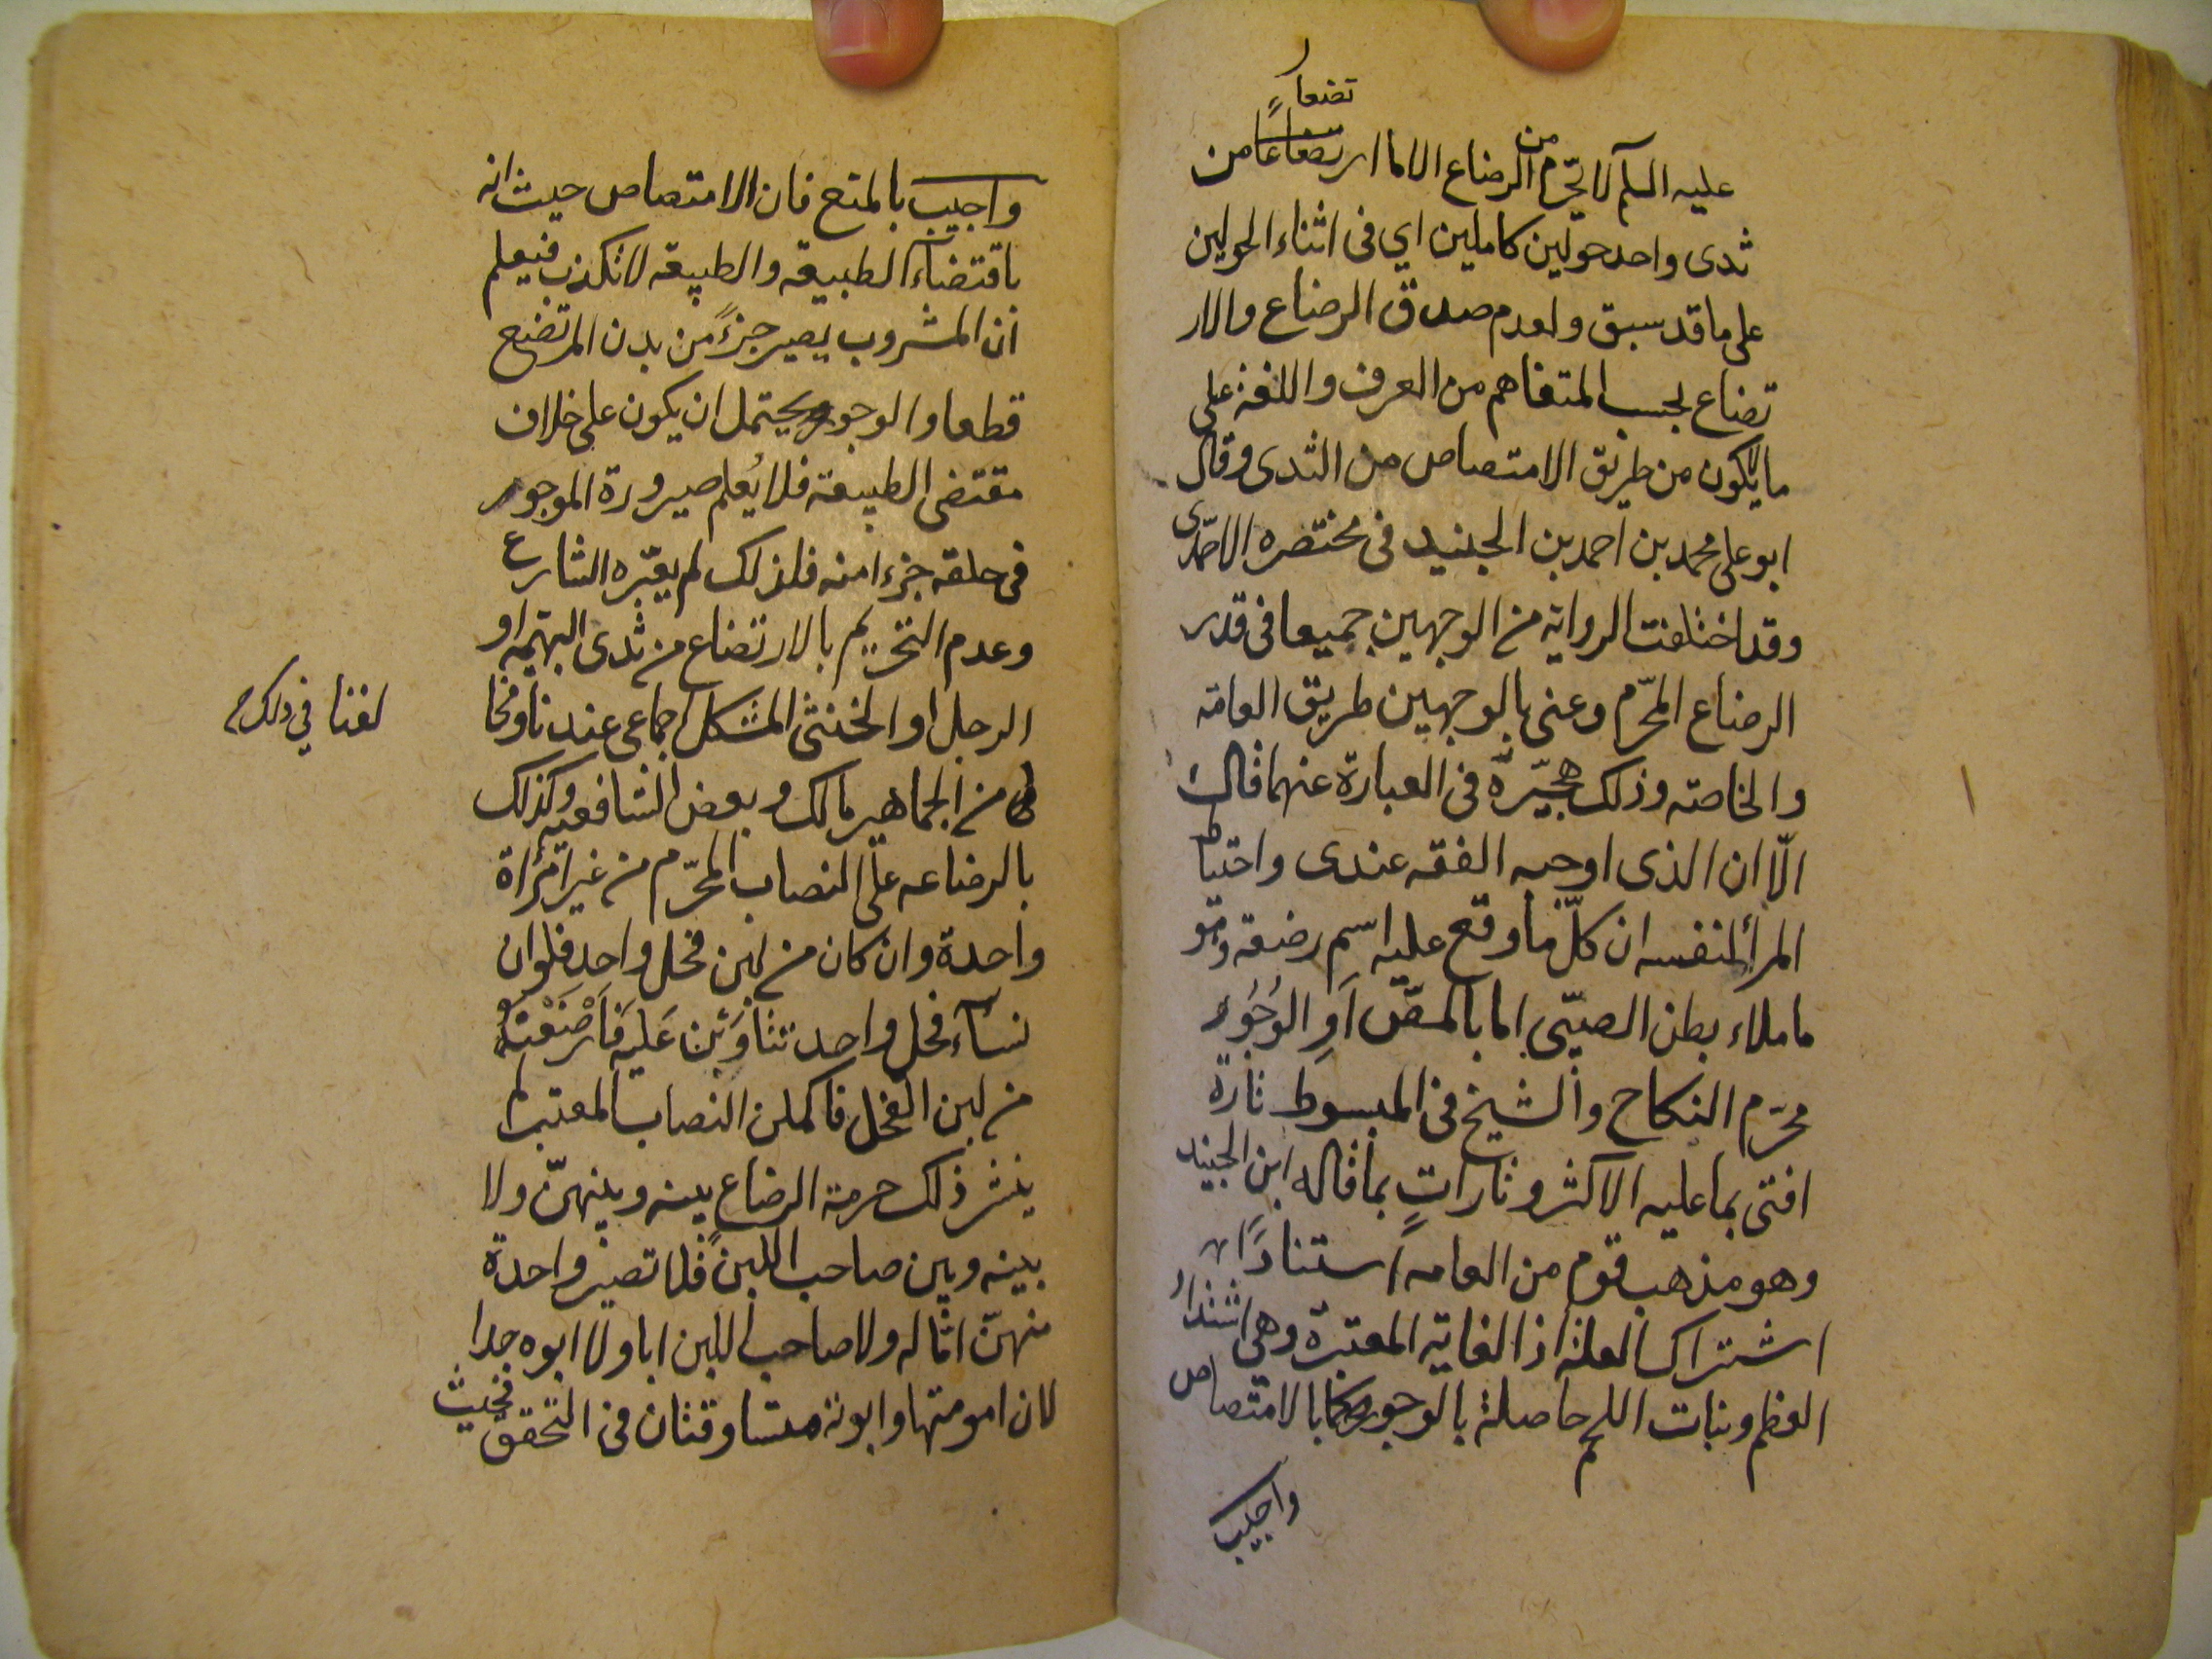 تضعا
عليه السلم لا يحرّم من الرضاع الا ما ارتضعا من
ثدى واحد حولين كاملين اي فى اثناء الحولين
على ما قد سبق ولعدم صدق الرضاع والار
تضاع بحسب المتفاهم من العرف واللغة على
ما لا يكون من طريق الامتصاص من الثدى وقال
ابو على محمد بن احمد بن الجنيد فى مختصره الاحمدى
وقد اختلفت الرواية من الوجهين جميعا فى قدر
الرضاع المحرّم وعنى بالوجهين طريق العامّه
والخاصته وذلك هجّيره فى العبارة عنهما قال
الّا ان الذى اوجبه الفقه عندى واحتياط
المرأ لنفسه ان كلّ ما وقع عليه اسم رضعة وهو
ما ملاء بطن الصبّى اما بالمصّ اَو الوَجُور
محرّم النكاح والشيخ فى المبسوط تارة
افتى بما عليه الاكثر وتاراتٍ بما قاله ابن الجنيد
وهو مذهب قوم من العامه استنادًا الى
اشتراك العلة اذ الغاية المعتبرة وهى اشتداد
العظم ونبات اللحم حاصلة بالوجور كما بالامتصاص
واجيب
واجيب بالمنع فان الامتصاص حيث انه
باقتضاء الطبيعة والطبيعة لا تكذب فيعلم
ان المشروب يصير جزءً من بدن المرتضع
قطعا والوجور يحتمل ان يكون على خلاف
مقتضى الطبيعة فلا يُعلم صيرورة الموجور
فى حلقه جزءا منه فلذلك لم يعتبره الشارع
وعدم التحريم بالارتضاع من ثدى البهيمه او
الرجل او الخنثى المشكل اجماعى عندنا ومخا
لفنا في ذلك
من الجماهير مالك وبعض الشافعيه وكذلك
بالرضاعه على النصاب المحرّم من غير امرأة
واحدة وان كان من لبن فحل واحد فلو ان
نسآء فحل واحد تناوَبْن عَليه فَارْضَعْنَهُ
من لبن الفحل فاكملن النصاب المعتبر لم
ينشر ذلك حرمة الرضاع بينه وبينهنّ ولا
بينه وبين صاحب اللبن فلا تصير واحدة
منهنّ امّا له ولا صاحب اللبن ابا ولا ابوه جدا
لان امومتها وابوته متساوقتان فى التحقق فحيث